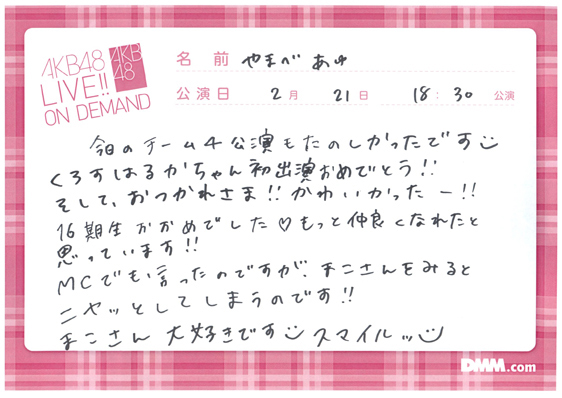 AKB48
LIVE!!
ON DEMAND
AKB
48
名前 やまべ あゆ
公演日 2月 21日 18:30 公演
今日のチーム4公演もたのしかったです
くろすはるかちゃん初出演おめでとう!!
そして、おつかれさま!!かわいかったー!!
16期生かかめでした♡もっと仲良くなれたと
思っています!!
MCでも言ったのですが、まこさんをみると
ニヤッとしてしまうのです!!
まこさん 大好きです スマイルッ
DMM.com